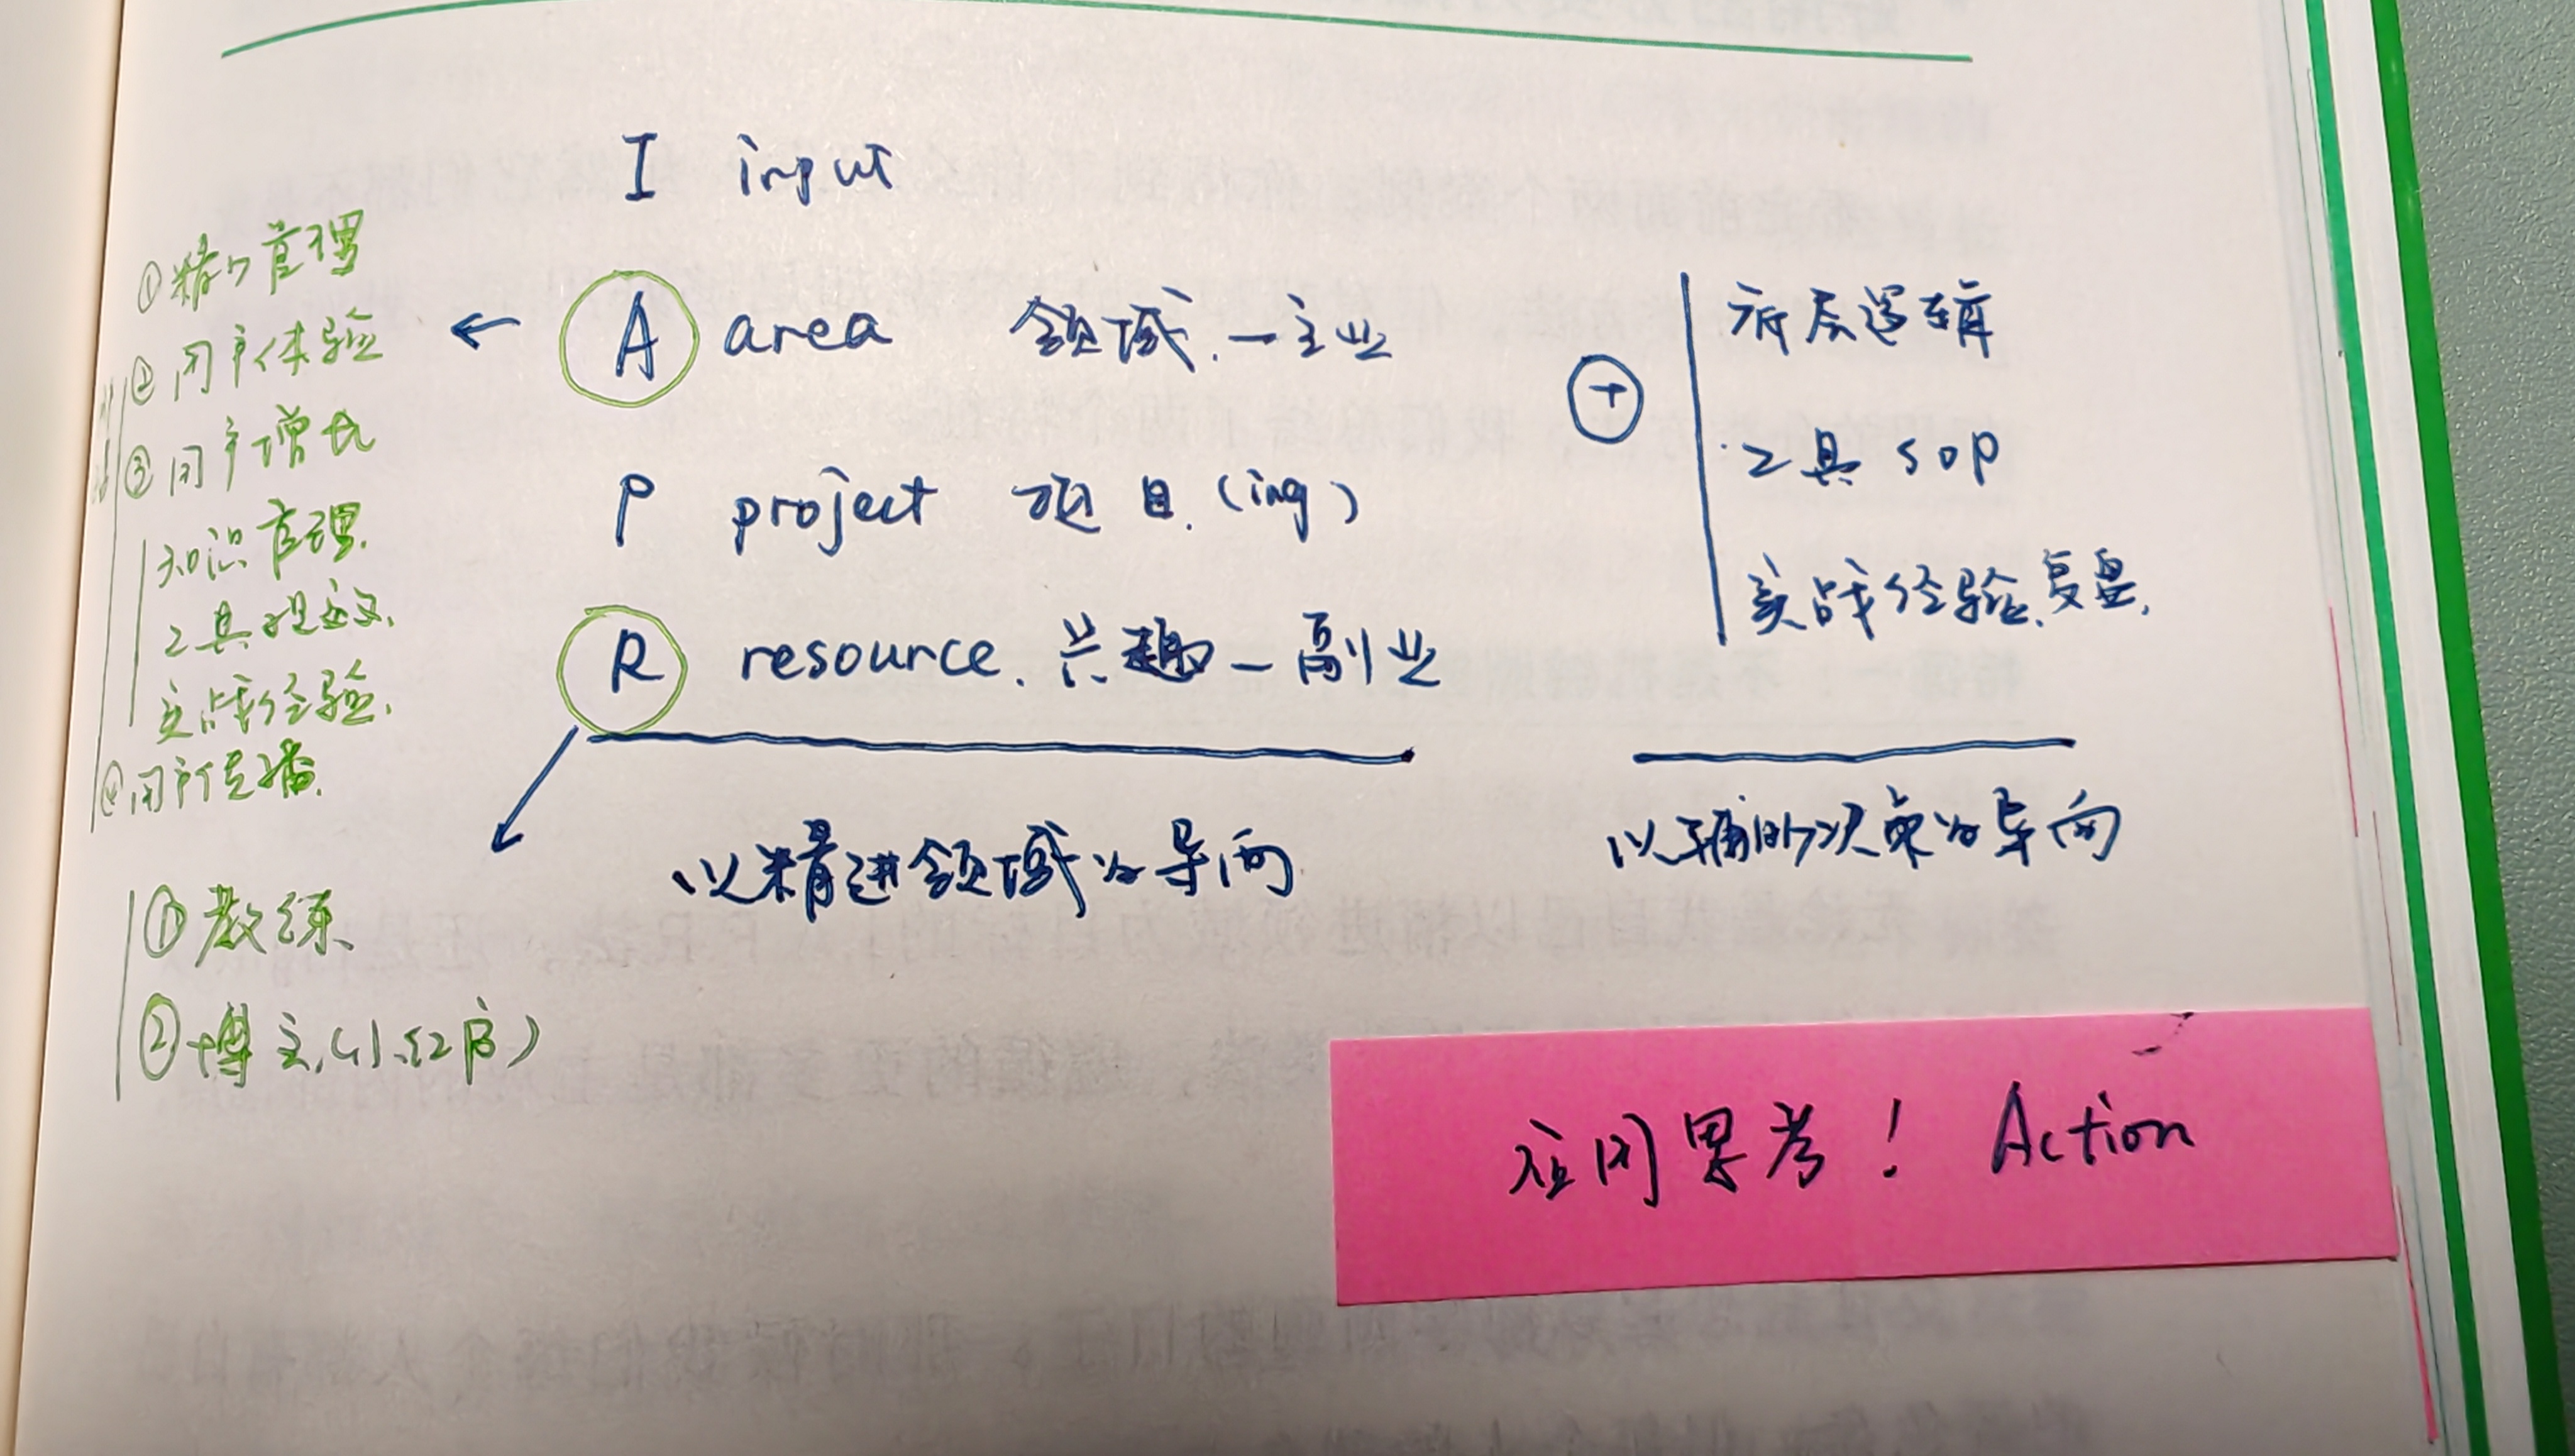 I input
A area 领域.—主业
P project 项目.(ing)
R resource.兴趣—副业
以精进领域为导向
+
底层逻辑
工具 SOP
实战经验.复盘.
以辅助决策为导向
①精力管理
②用户体验
③用户增长
知识管理.
工具提效.
实战经验.
④用户传播.
①教练
②博主.(小红书)
应用思考！ Action